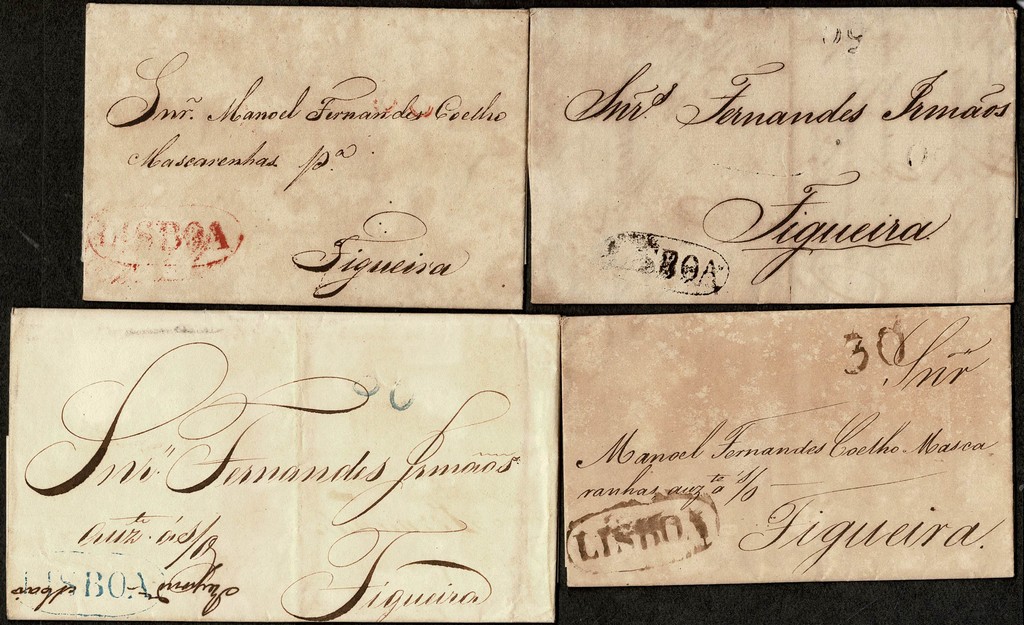 Snr. Manoel Fernandes Coelho
Mascarenhas pª.
LISBOA
Figueira
Snrs. Fernandes Irmãos
Figueira
LISBOA
Snr. Fernandes Irmãos
auzte
LISBOA
Figueira
30
Snr
Manoel Fernandes Coelho Masca
ranhas auzte a s/o
LISBOA
Figueira.